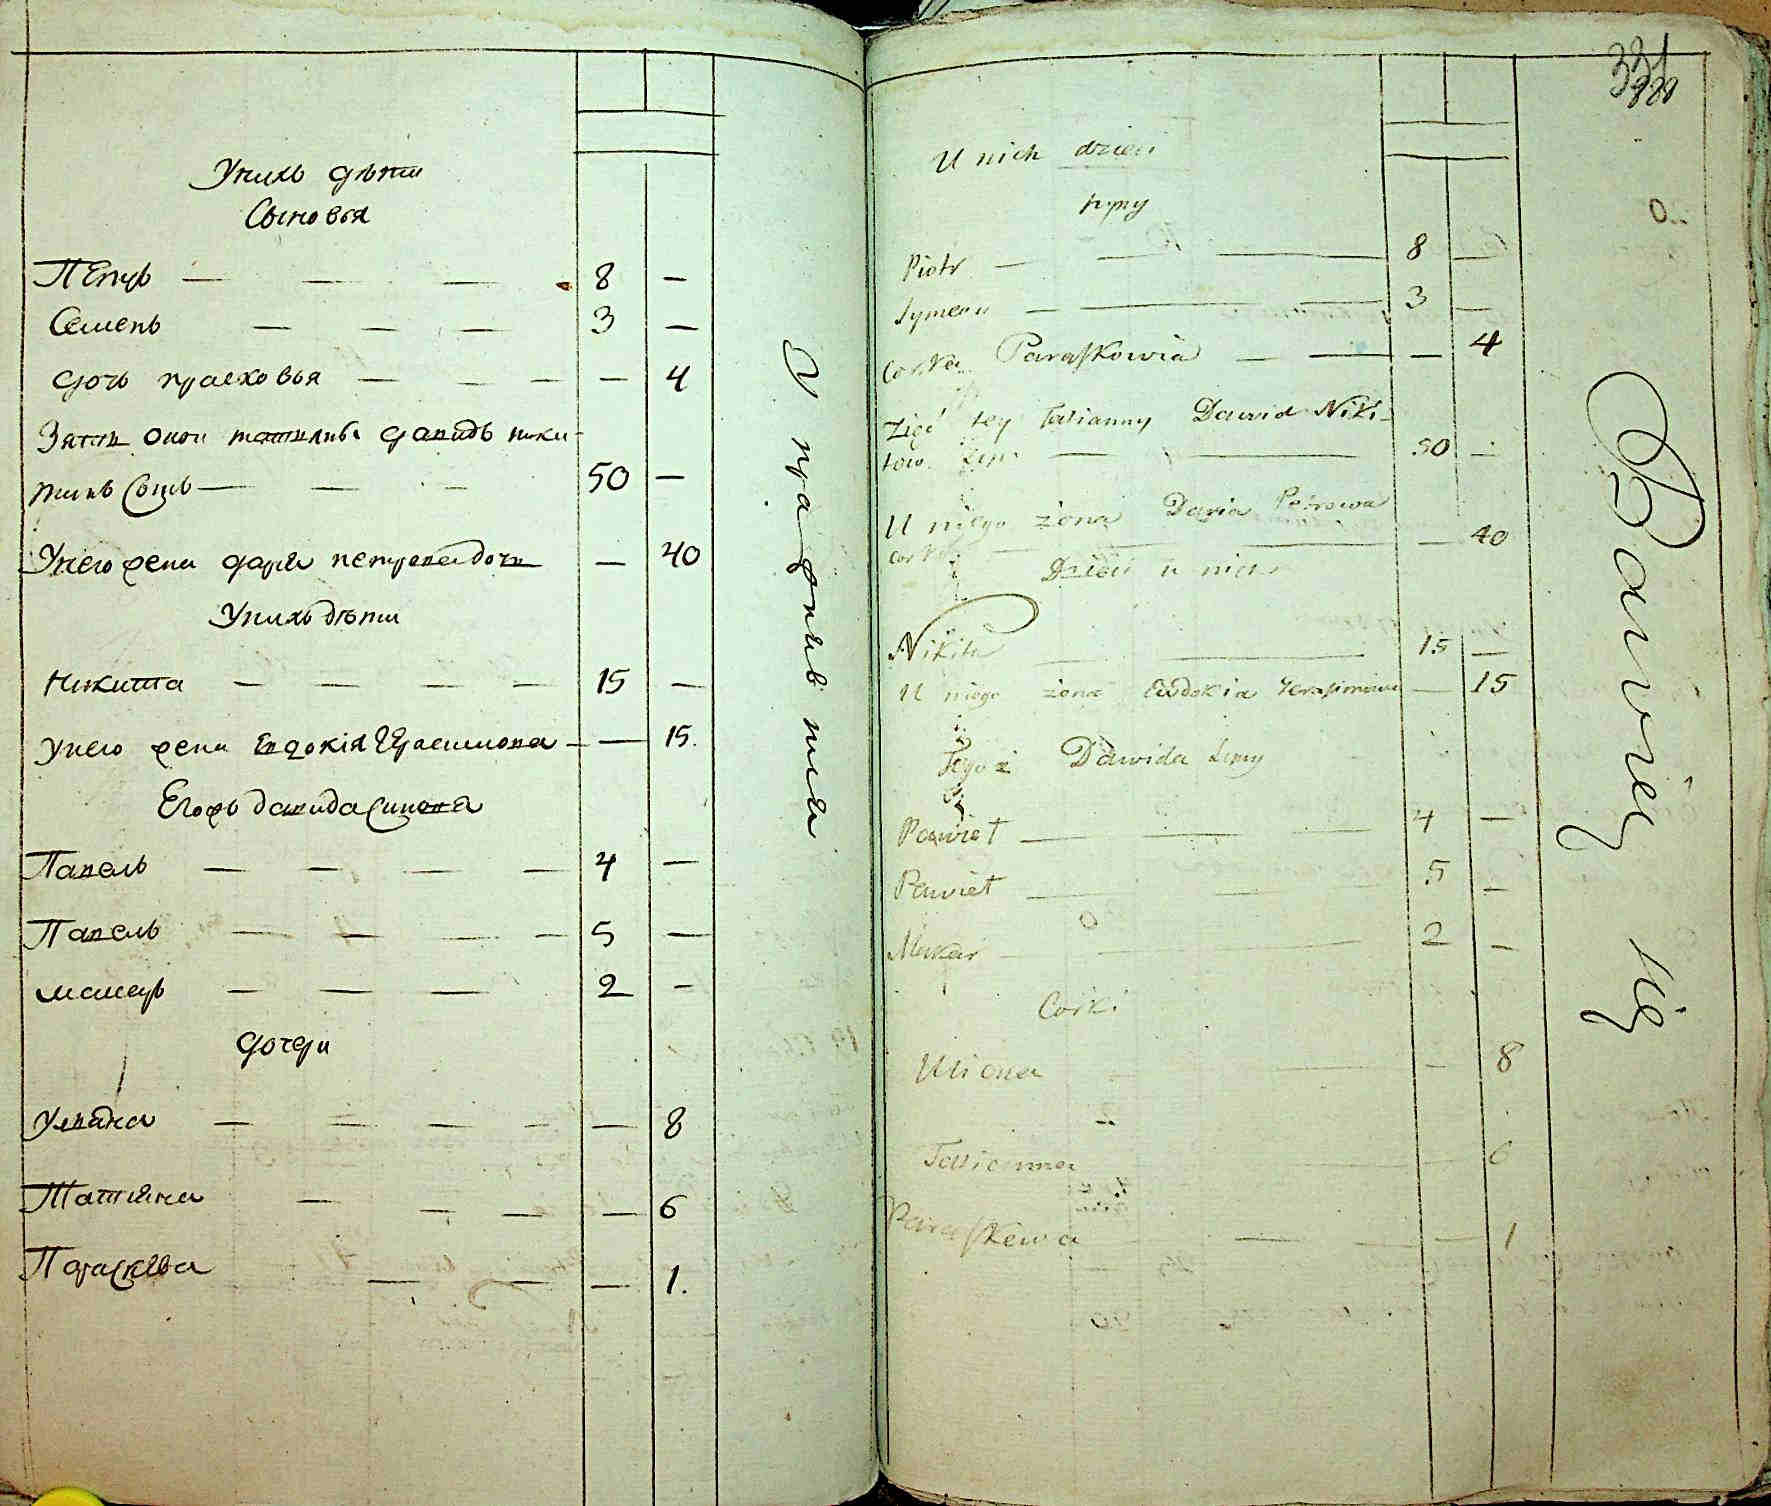 У нихъ дѣти
Сыновья
Петръ — — — 8 —
Семенъ — — — 3 —
дочь прасковья — — — — 4
Зять оной татианы давидъ ники-
тинъ Сынъ — — — 50 —
У него жена дарья петрова дочь — 40
У нихъ дѣти
Никита — — — — 15 —
у него жена Евдокія Герасимова — — 15.
Егожъ давида Синовя
Павелъ — — — — 4 —
Павелъ — — — — 5 —
макаръ — — — 2 —
дочери
Ульяна — — — — — 8
Татияна — — — — 6
Параскева — — — 1.
331
U nich dzieci
syny
Piotr — — — 8 —
Symeon — — — 3 —
Corka Paraskowia — — — 4
Zięć tey Tatianny Dawid Niki-
tow Syn — — 50 —
U niego żona Daria Petrowa
corka — — — — 40
Dzieci u nich
Nikita — — 15 —
U niego żona Eudokia Jerasimowa — 15
Tegoż Dawida Syny
Paweł — — — 4 —
Paweł — — — 5 —
Makar — — — 2 —
Corki
Uliana — — — 8
Tatianna — — 6
Paraskewa — — — — 1